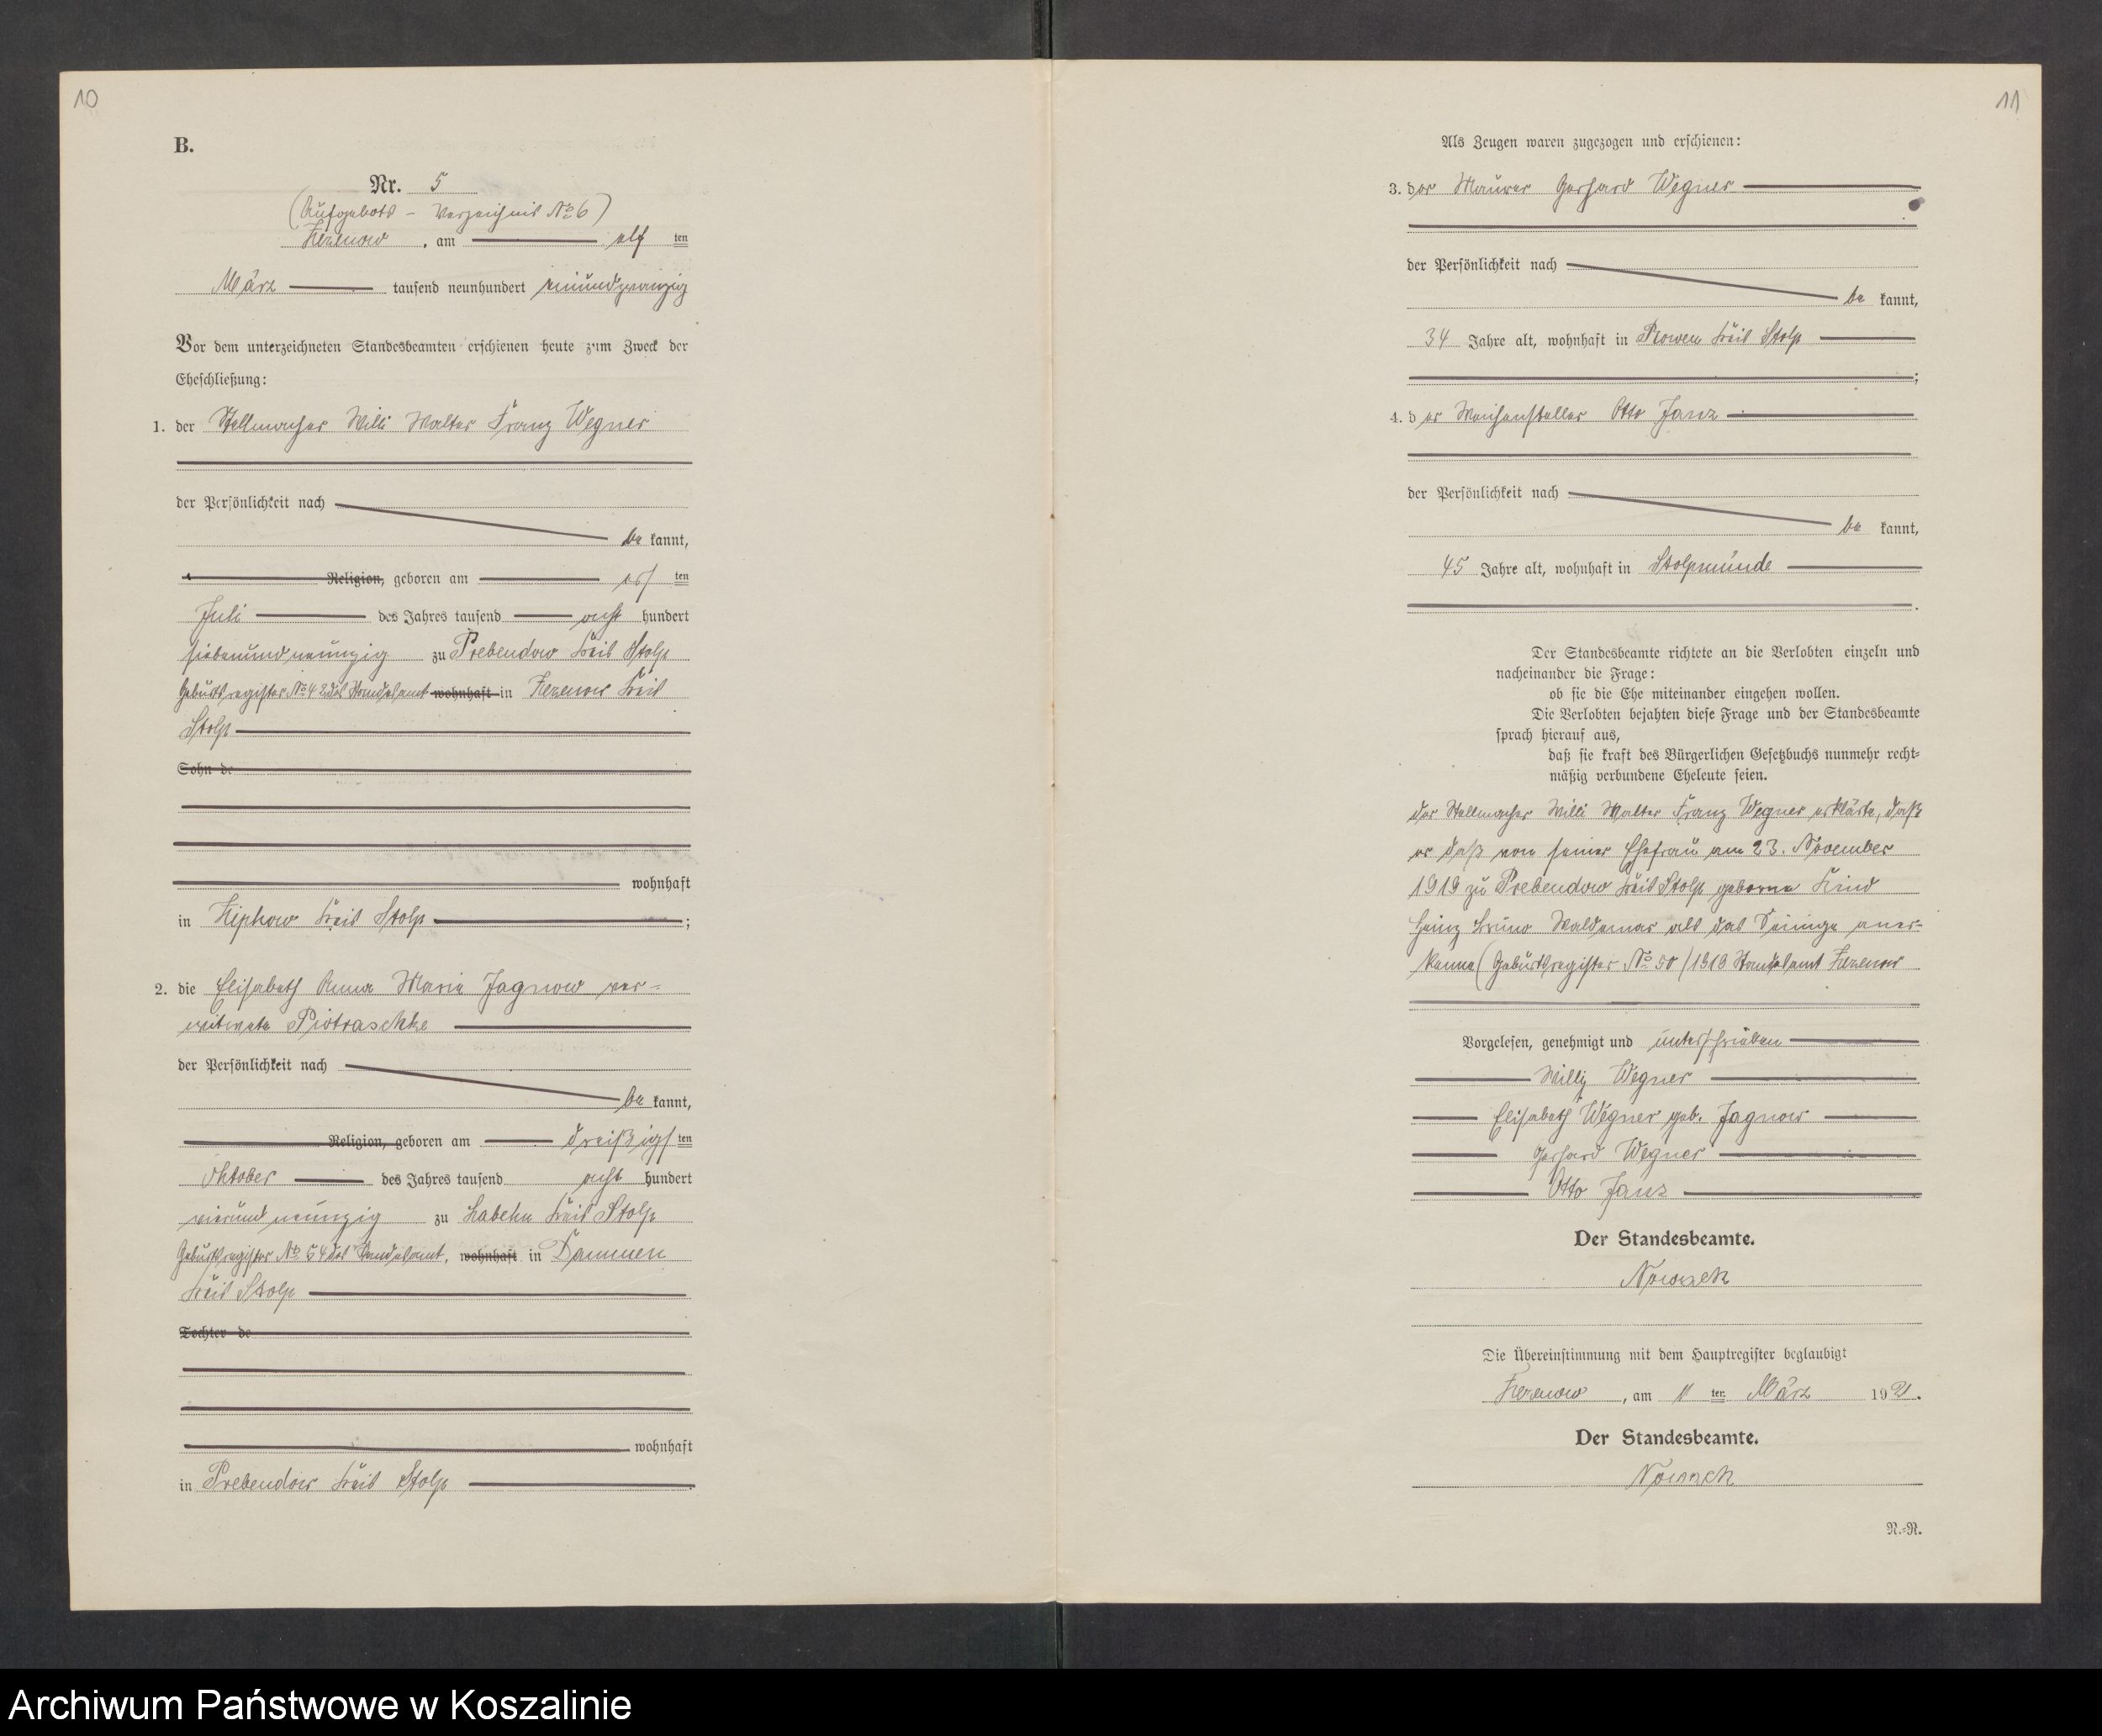 10
B.
Nr. 5
(Aufgebots - Verzeichnis No 6)
Zezenow, am elf ten
März tausend neunhundert einundzwanzig
Vor dem unterzeichneten Standesbeamten erschienen heute zum Zweck der
Eheschließung:
1. der Stellmacher Willi Walter Franz Wegner
der Persönlichkeit nach
be kannt,
Religion, geboren am ers ten
Juli des Jahres tausend acht hundert
siebenundneunzig zu Prebendow Kreis Stolp
Geburtsregister No 42 des Standesamt wohnhaft in Zezenow Kreis
Stolp
Sohn de
wohnhaft
in Zipkow Kreis Stolp ;
2. die Elisabeth Anna Maria Jagnow ver-
witwete Piotraschke
der Persönlichkeit nach
be kannt,
Religion, geboren am dreißigs ten
Oktober des Jahres tausend acht hundert
vierundneunzig zu Labehn Kreis Stolp
Geburtsregister No 54 des Standesamt, wohnhaft in Dammen
Kreis Stolp
Tochter de
wohnhaft
in Prebendow Kreis Stolp
11
Als Zeugen waren zugezogen und erschienen:
3. der Maurer Gerhard Wegner
der Persönlichkeit nach
be kannt,
34 Jahre alt, wohnhaft in Rowen Kreis Stolp
;
4. der Weichensteller Otto Janz
der Persönlichkeit nach
be kannt,
45 Jahre alt, wohnhaft in Stolpmünde
.
Der Standesbeamte richtete an die Verlobten einzeln und
nacheinander die Frage:
ob sie die Ehe miteinander eingehen wollen.
Die Verlobten bejahten diese Frage und der Standesbeamte
sprach hierauf aus,
daß sie kraft des Bürgerlichen Gesetzbuchs nunmehr recht-
mäßig verbundene Eheleute seien.
der Stellmacher Willi Walter Franz Wegner erklärte, daß
er daß von seiner Ehefrau am 23. November
1919 zu Prebendow Kreis Stolp geborne Kind
Heinz Bruno Waldemar als das Seinige aner-
kenne (Geburtsregister No 50/1919 Standesamt Zezenow
Vorgelesen, genehmigt und unterschrieben
Willy Wegner
Elisabeth Wegner geb. Jagnow
Gerhard Wegner
Otto Janz
Der Standesbeamte.
Nowack
Die Übereinstimmung mit dem Hauptregister beglaubigt
Zezenow, am 11 ten März 1921.
Der Standesbeamte.
Nowack
N.-R.
Archiwum Państwowe w Koszalinie